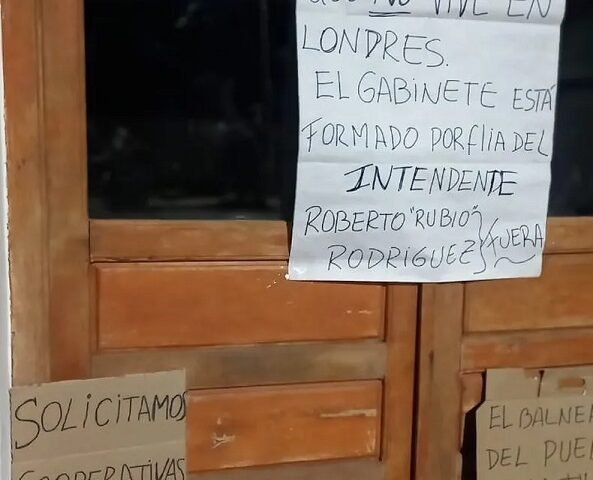 NO VIVE EN
LONDRES.
EL GABINETE ESTÁ
FORMADO POR FLIA DEL
INTENDENTE
ROBERTO "RUBIO"
RODRIGUEZ } FUERA
SOLICITAMOS
COOPERATIVAS
EL BALNE
DEL PUE